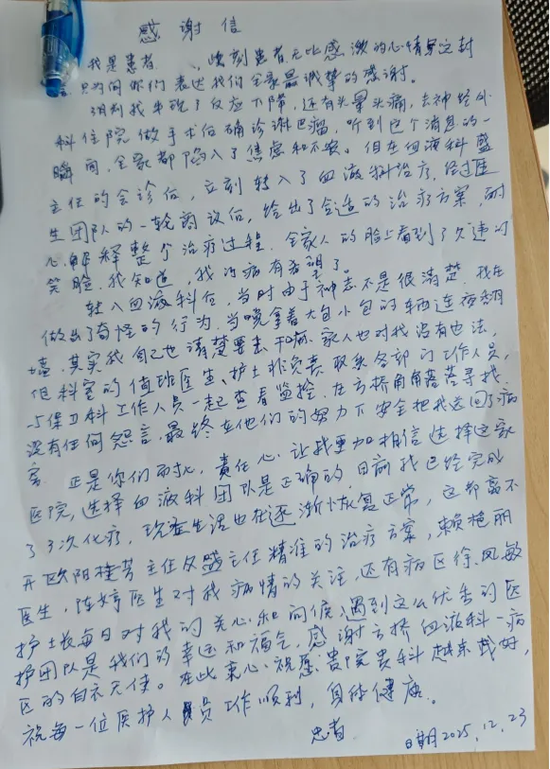 感谢信
我是患者 、 此刻患者无比感激的心情写这封
只为向你们表达我们全家最诚挚的感谢。
须到我出现了反应下降,还有头晕头痛,去神经外
科住院做手术后确诊淋巴瘤,听到这个消息的一
瞬间,全家都陷入了焦虑和不安。但在血液科盛
主任的会诊后,立刻转入了血液科治疗,经过医
生团队的一轮商议后,给出了合适的治疗方案,耐
心解释整个治疗过程,全家人的脸上看到了久违的
笑脸,我知道,我的病有希望了。
转入血液科后,当时由于神志不是很清楚,我在
做出了奇怪的行为,当晚拿着大包小包的东西连夜翻
墙,其实我自己也清楚要去干嘛,家人也对我没有办法,
但科室的值班医生、护士非负责联系各部门工作人员,
与保卫科工作人员一起查看监控,在方桥角角落落寻找,
没有任何怨言,最终在他们的努力下安全把我送回了病
房 正是你们耐心,责任心,让我更加相信选择这家
医院,选择血液科团队是正确的,目前我已经完成
了3次化疗,现在生活也在逐渐恢复正常,这都离不
开欧阳桂芳主任及盛主任精准的治疗方案,赖艳丽
医生,陈婷医生对我病情的关注,还有病区徐凤敏
护士长每日对我的关心和问候,遇到这么优秀的医
护团队是我们的幸运和福气,感谢方桥血液科一病
区的白衣天使。在此衷心祝愿:贵院贵科越来越好,
祝每一位医护人员工作顺利,身体健康。
患者
日期2025.12.23